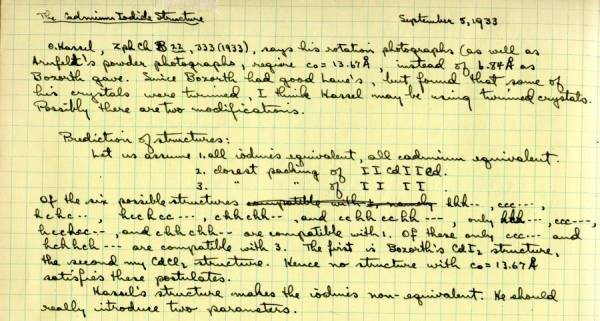 The Cadmium Iodide Structure September 5, 1933
O. Hassel, Zph Ch B 22, 333 (1933), says his rotation photographs (as well as
Arnfelt's powder photographs, require c₀ = 13.67Å, instead of 6.84Å as
Bozorth gave. Since Bozorth had good Laue's, but found that some of
his crystals were twinned, I think Hassel may be using twinned crystals.
Possibly there are two modifications.
Prediction of structures:
Let us assume 1. all iodines equivalent, all cadmium equivalent.
2. closest packing of I I Cd I I Cd.
3. " " of I I I I
Of the six possible structures compatible with 2, namely hhh--, ccc---,
hchc--, hcchcc---, chhchh--, and cchhcchh---, only hhh---, ccc---,
hcchcc--, and chhchh-- are compatible with 1. Of these only ccc--- and
hchhch--- are compatible with 3. The first is Bozorth's CdI₂ structure,
the second my CdCl₂ structure. Hence no structure with c₀ = 13.67Å
satisfies these postulates.
Hassel's structure makes the iodines non-equivalent. He should
really introduce two parameters.